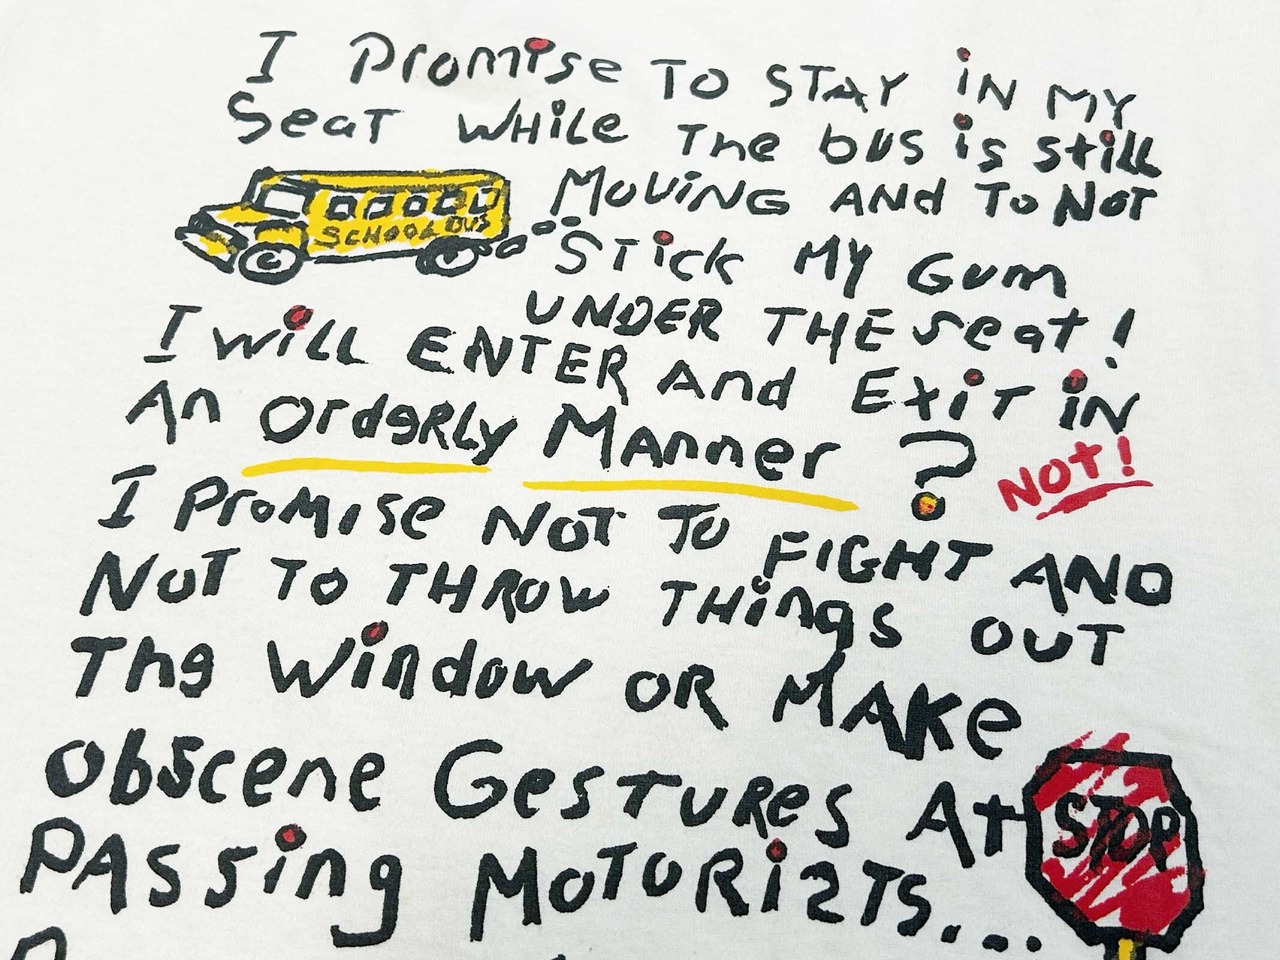 I Promise TO STAY iN MY
Seat WHiLE The bUS is still
MOVING AND To NOT
SCHOOL BUS
STick MY Gum
UNDER THE seat!
I will ENTER And ExiT iN
An OrdeRLy Manner ?
NOT!
I PROMISE NOT TO FIGHT AND
NOT TO THROW THings OUT
The Window OR MAKe
Obscene GesTURes At
STOP
PASSing MOTORiSTS...